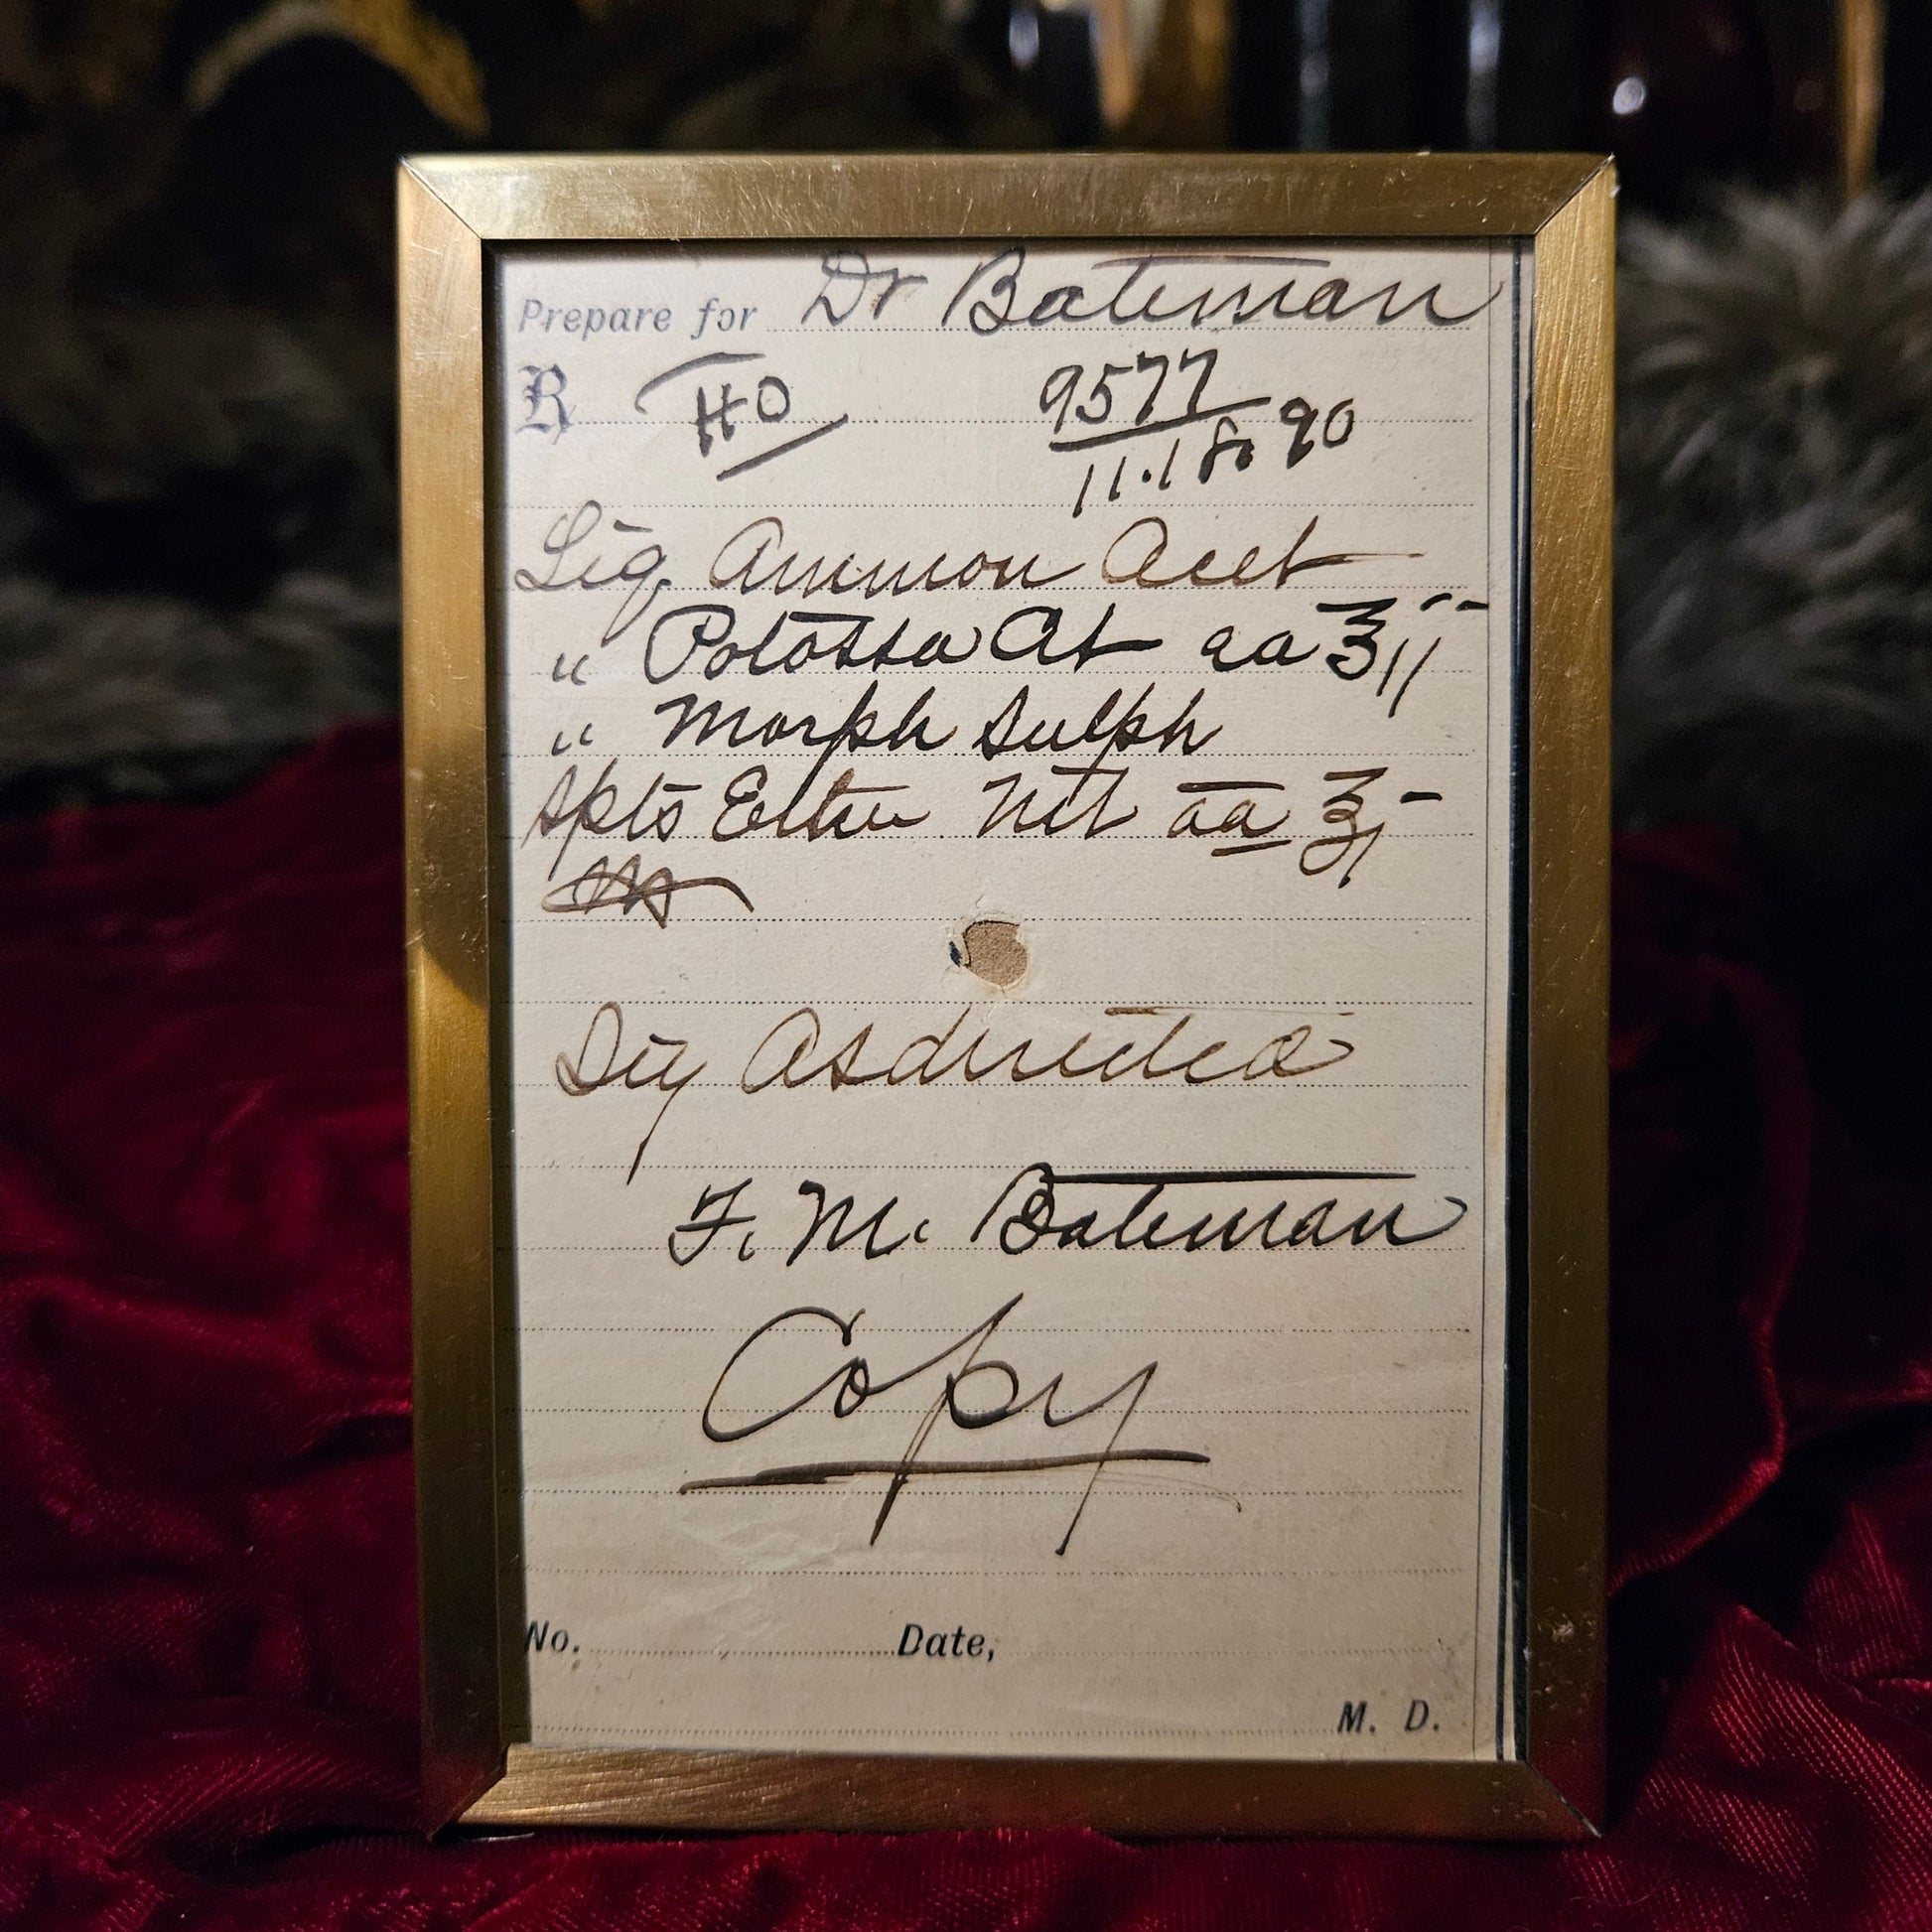 Prepare for Dr Bateman
℞ HO 9577
11.18.90
Liq Ammon Acet
" Potassa Cit aa ʒii
" Morph Sulph
Spts Ether Nit aa ʒi
Sig As directed
F. M. Bateman
Copy
No. Date,
M. D.